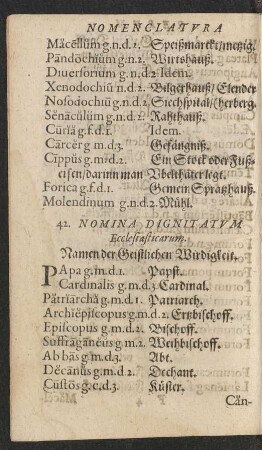 NOMENCLATVRA
Măcellum g.n.d.2. Speißmärckt/metzig.
Pandochium g.n.2. Wirtshauß.
Diuersorium g.n.d.2. Idem.
Xenodochiū n.d.2. Bilgerhauß/Elender
Nosodochiū g.n.d.2. Siechspital/(herberg.
Sĕnācŭlum g.n.d.2. Rahthauß.
Cūrĭa g.f.d.1. Idem.
Carcĕr g.m.d.3. Gefängniß.
Cippus g.m.d.2. Ein Stock oder Fuß-
eisen/darinn man Vbelthäter legt.
Forica g.f.d.1. Gemein Sprachhauß.
Molendinum g.n.d.2. Mühl.
42. NOMINA DIGNITATVM
Ecclesiasticarum.
Namen der Geistlichen Wirdigkeit.
PApa g.m.d.1. Papst.
Cardinalis g.m.d.3. Cardinal.
Pătrĭarchă g.m.d.1. Patriarch.
Archiĕpiscopus g.m.d.2. Ertzbischoff.
Episcopus g.m.d.2. Bischoff.
Suffrāgāneus g.m.2. Weihbischoff.
Abbās g.m.d.3. Abt.
Dĕcānus g.m.d.2. Dechant.
Custōs g.c.d.3. Küster.
Căn-